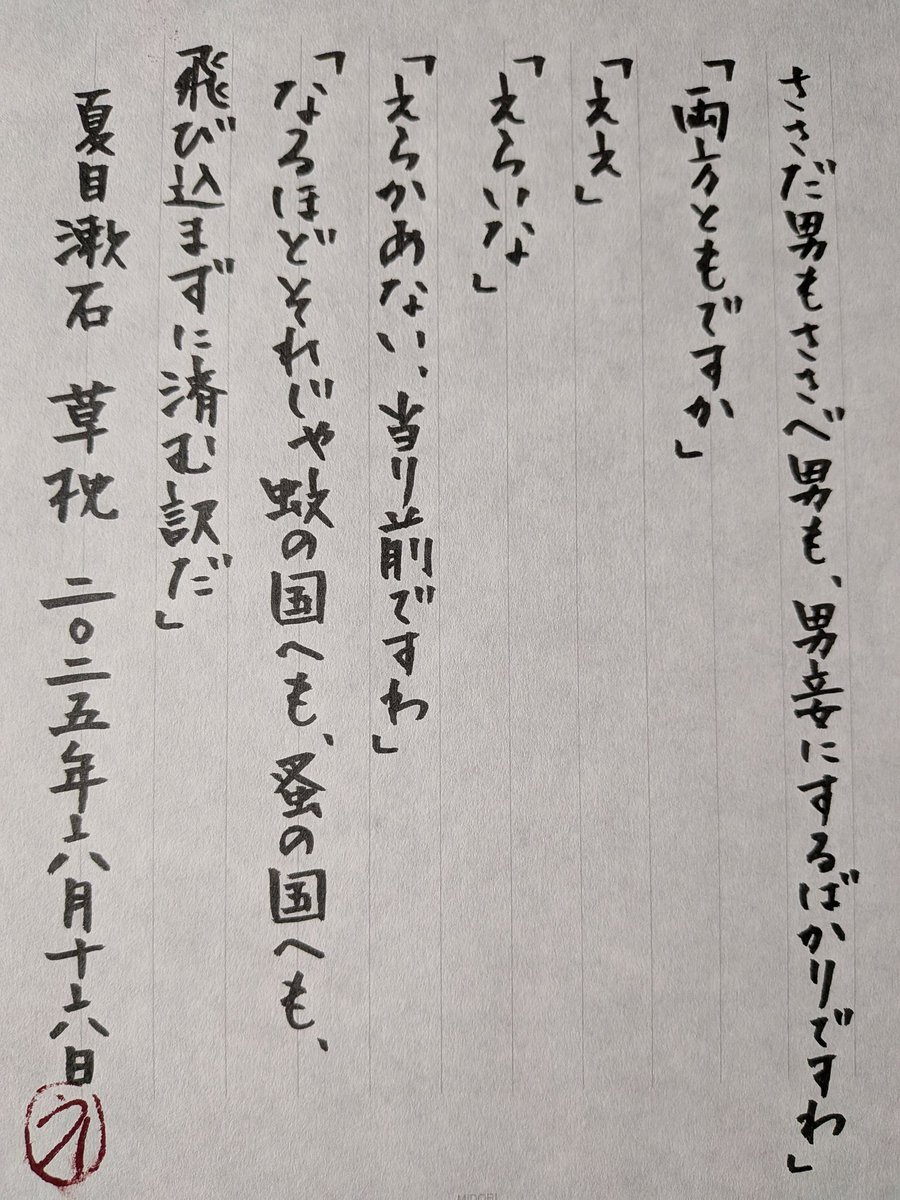 ささだ男もささべ男も、男妾にするばかりですわ」
「両方ともですか」
「ええ」
「えらいな」
「えらかあない、当り前ですわ」
「なるほどそれじゃ蚊の国へも、蚤の国へも、
飛び込まずに済む訳だ」
夏目漱石 草枕 二〇二五年六月十六日
MIDORI